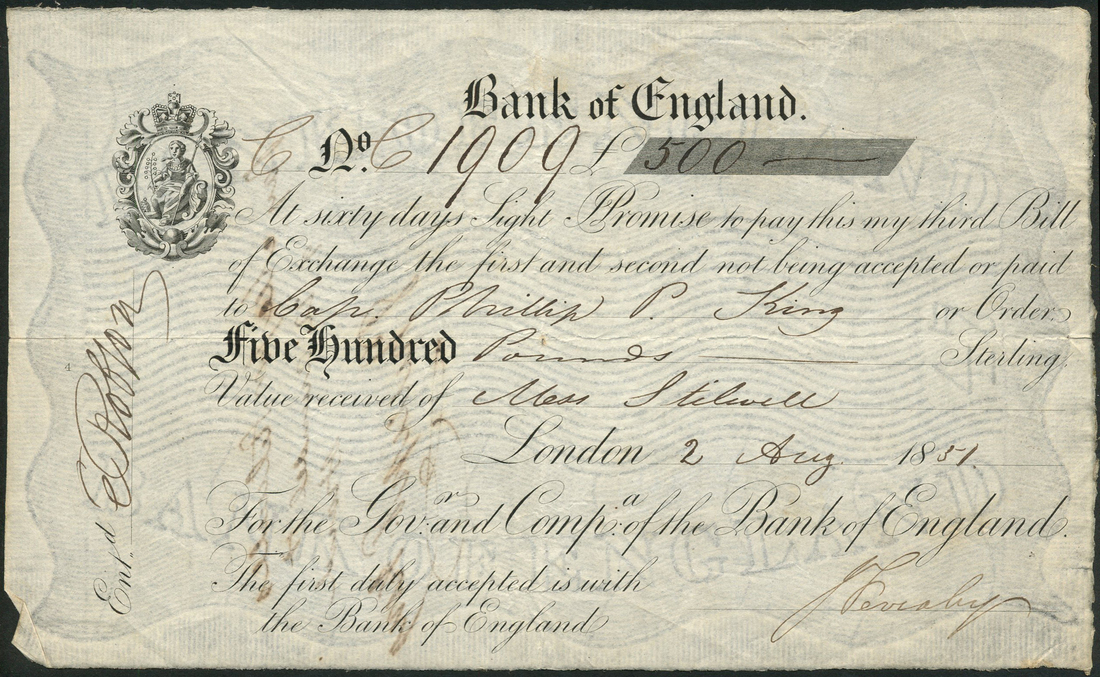 Bank of England.
C No. C 1909 £ 500
At sixty days Sight I Promise to pay this my third Bill
of Exchange the first and second not being accepted or paid
to Cap. Phillip P. King or Order
Five Hundred Pounds Sterling
Value received of Mess Stilwell
London 2 Aug 1851
For the Govr. and Compa. of the Bank of England.
The first duly accepted is with
the Bank of England
Ent,,d
4